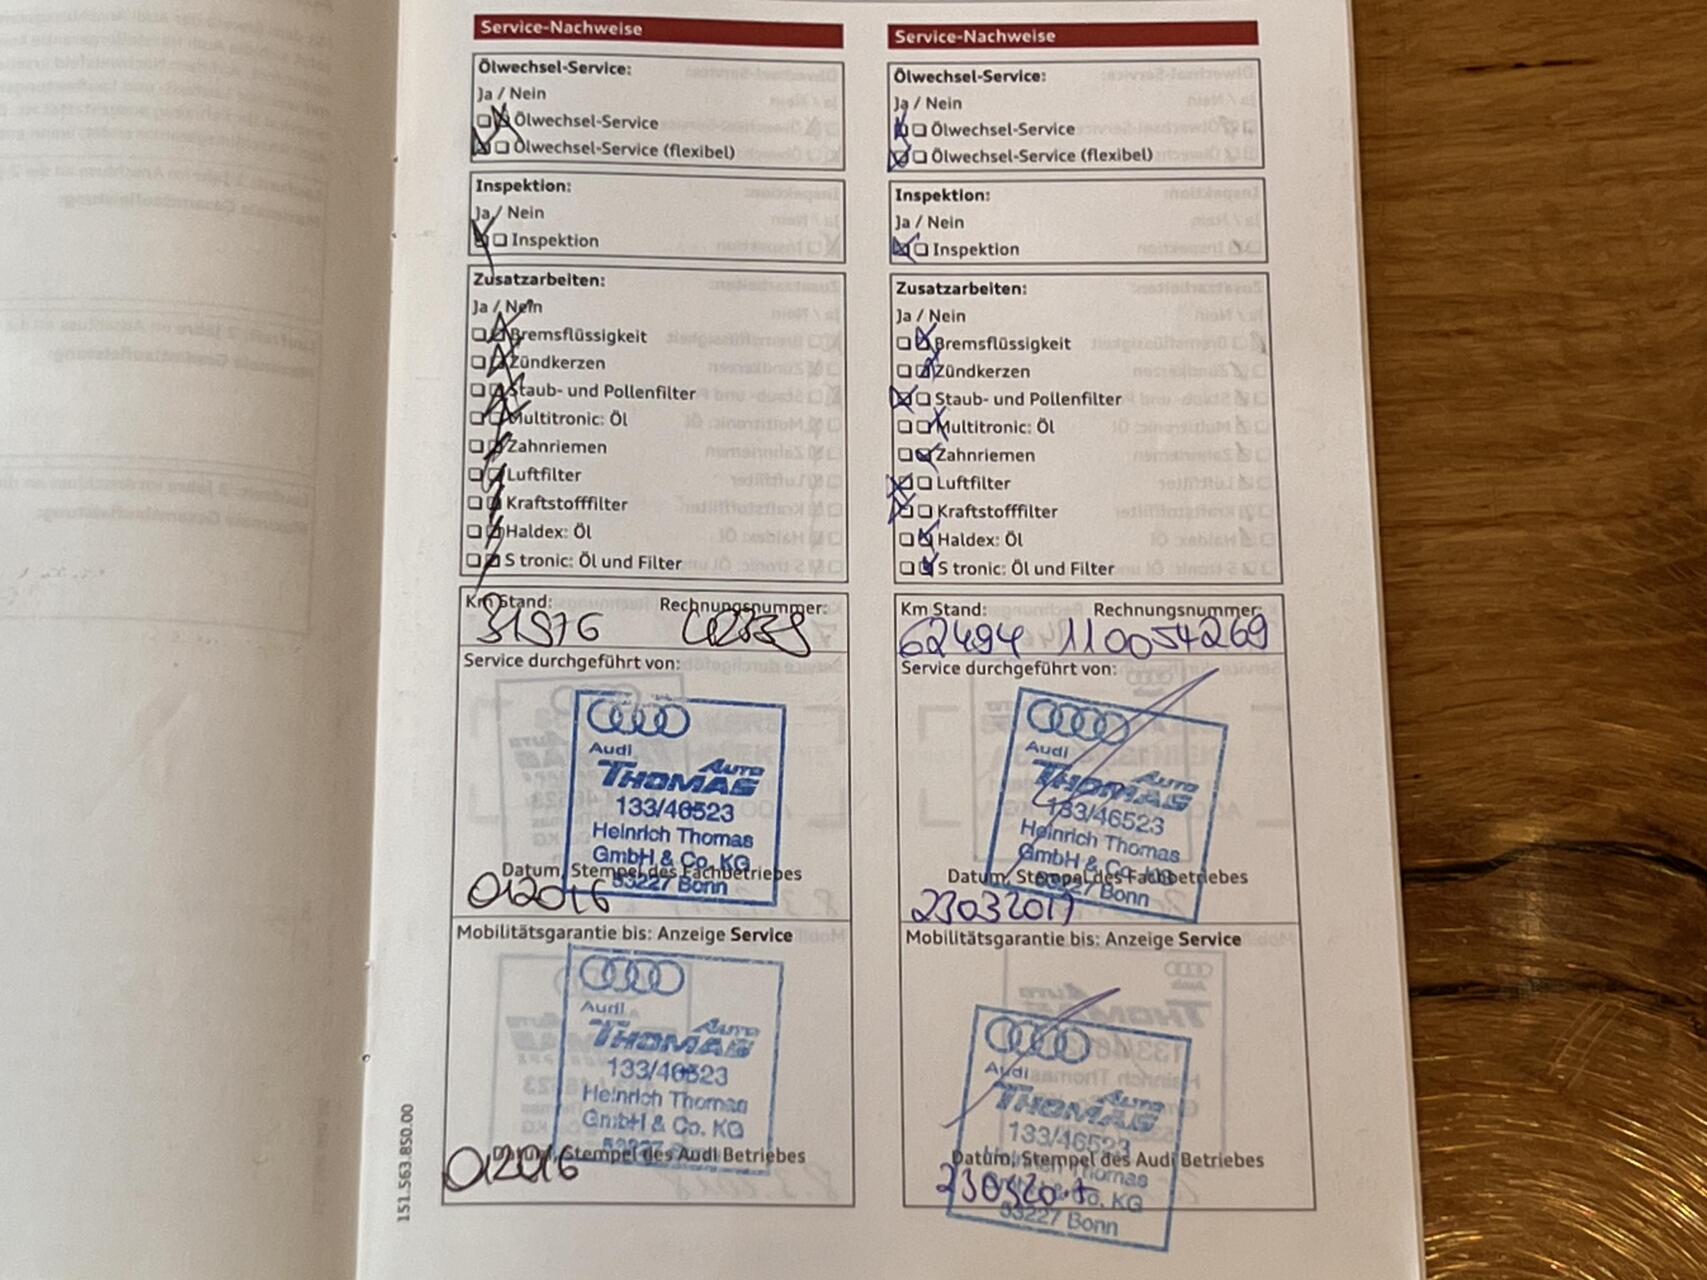 Service-Nachweise
Ölwechsel-Service:
Ja / Nein
Ölwechsel-Service
Ölwechsel-Service (flexibel)
Inspektion:
Ja / Nein
Inspektion
Zusatzarbeiten:
Ja / Nein
Bremsflüssigkeit
Zündkerzen
Staub- und Pollenfilter
Multitronic: Öl
Zahnriemen
Luftfilter
Kraftstofffilter
Haldex: Öl
S tronic: Öl und Filter
Km Stand: Rechnungsnummer:
Service durchgeführt von:
Audi
Auto
THOMAS
133/46523
Heinrich Thomas
GmbH & Co. KG
Datum, Stempel des Fachbetriebes
53227 Bonn
Mobilitätsgarantie bis: Anzeige Service
Audi
Auto
THOMAS
133/46523
Heinrich Thomas
GmbH & Co. KG
Datum, Stempel des Audi Betriebes
151.563.850.00
Service-Nachweise
Ölwechsel-Service:
Ja / Nein
Ölwechsel-Service
Ölwechsel-Service (flexibel)
Inspektion:
Ja / Nein
Inspektion
Zusatzarbeiten:
Ja / Nein
Bremsflüssigkeit
Zündkerzen
Staub- und Pollenfilter
Multitronic: Öl
Zahnriemen
Luftfilter
Kraftstofffilter
Haldex: Öl
S tronic: Öl und Filter
Km Stand: Rechnungsnummer:
62494 110054269
Service durchgeführt von:
Audi
Auto
THOMAS
133/46523
Heinrich Thomas
GmbH & Co. KG
Datum, Stempel des Fachbetriebes
53227 Bonn
23032017
Mobilitätsgarantie bis: Anzeige Service
Audi
Auto
THOMAS
133/46523
Datum, Stempel des Audi Betriebes
Heinrich Thomas
GmbH & Co. KG
53227 Bonn